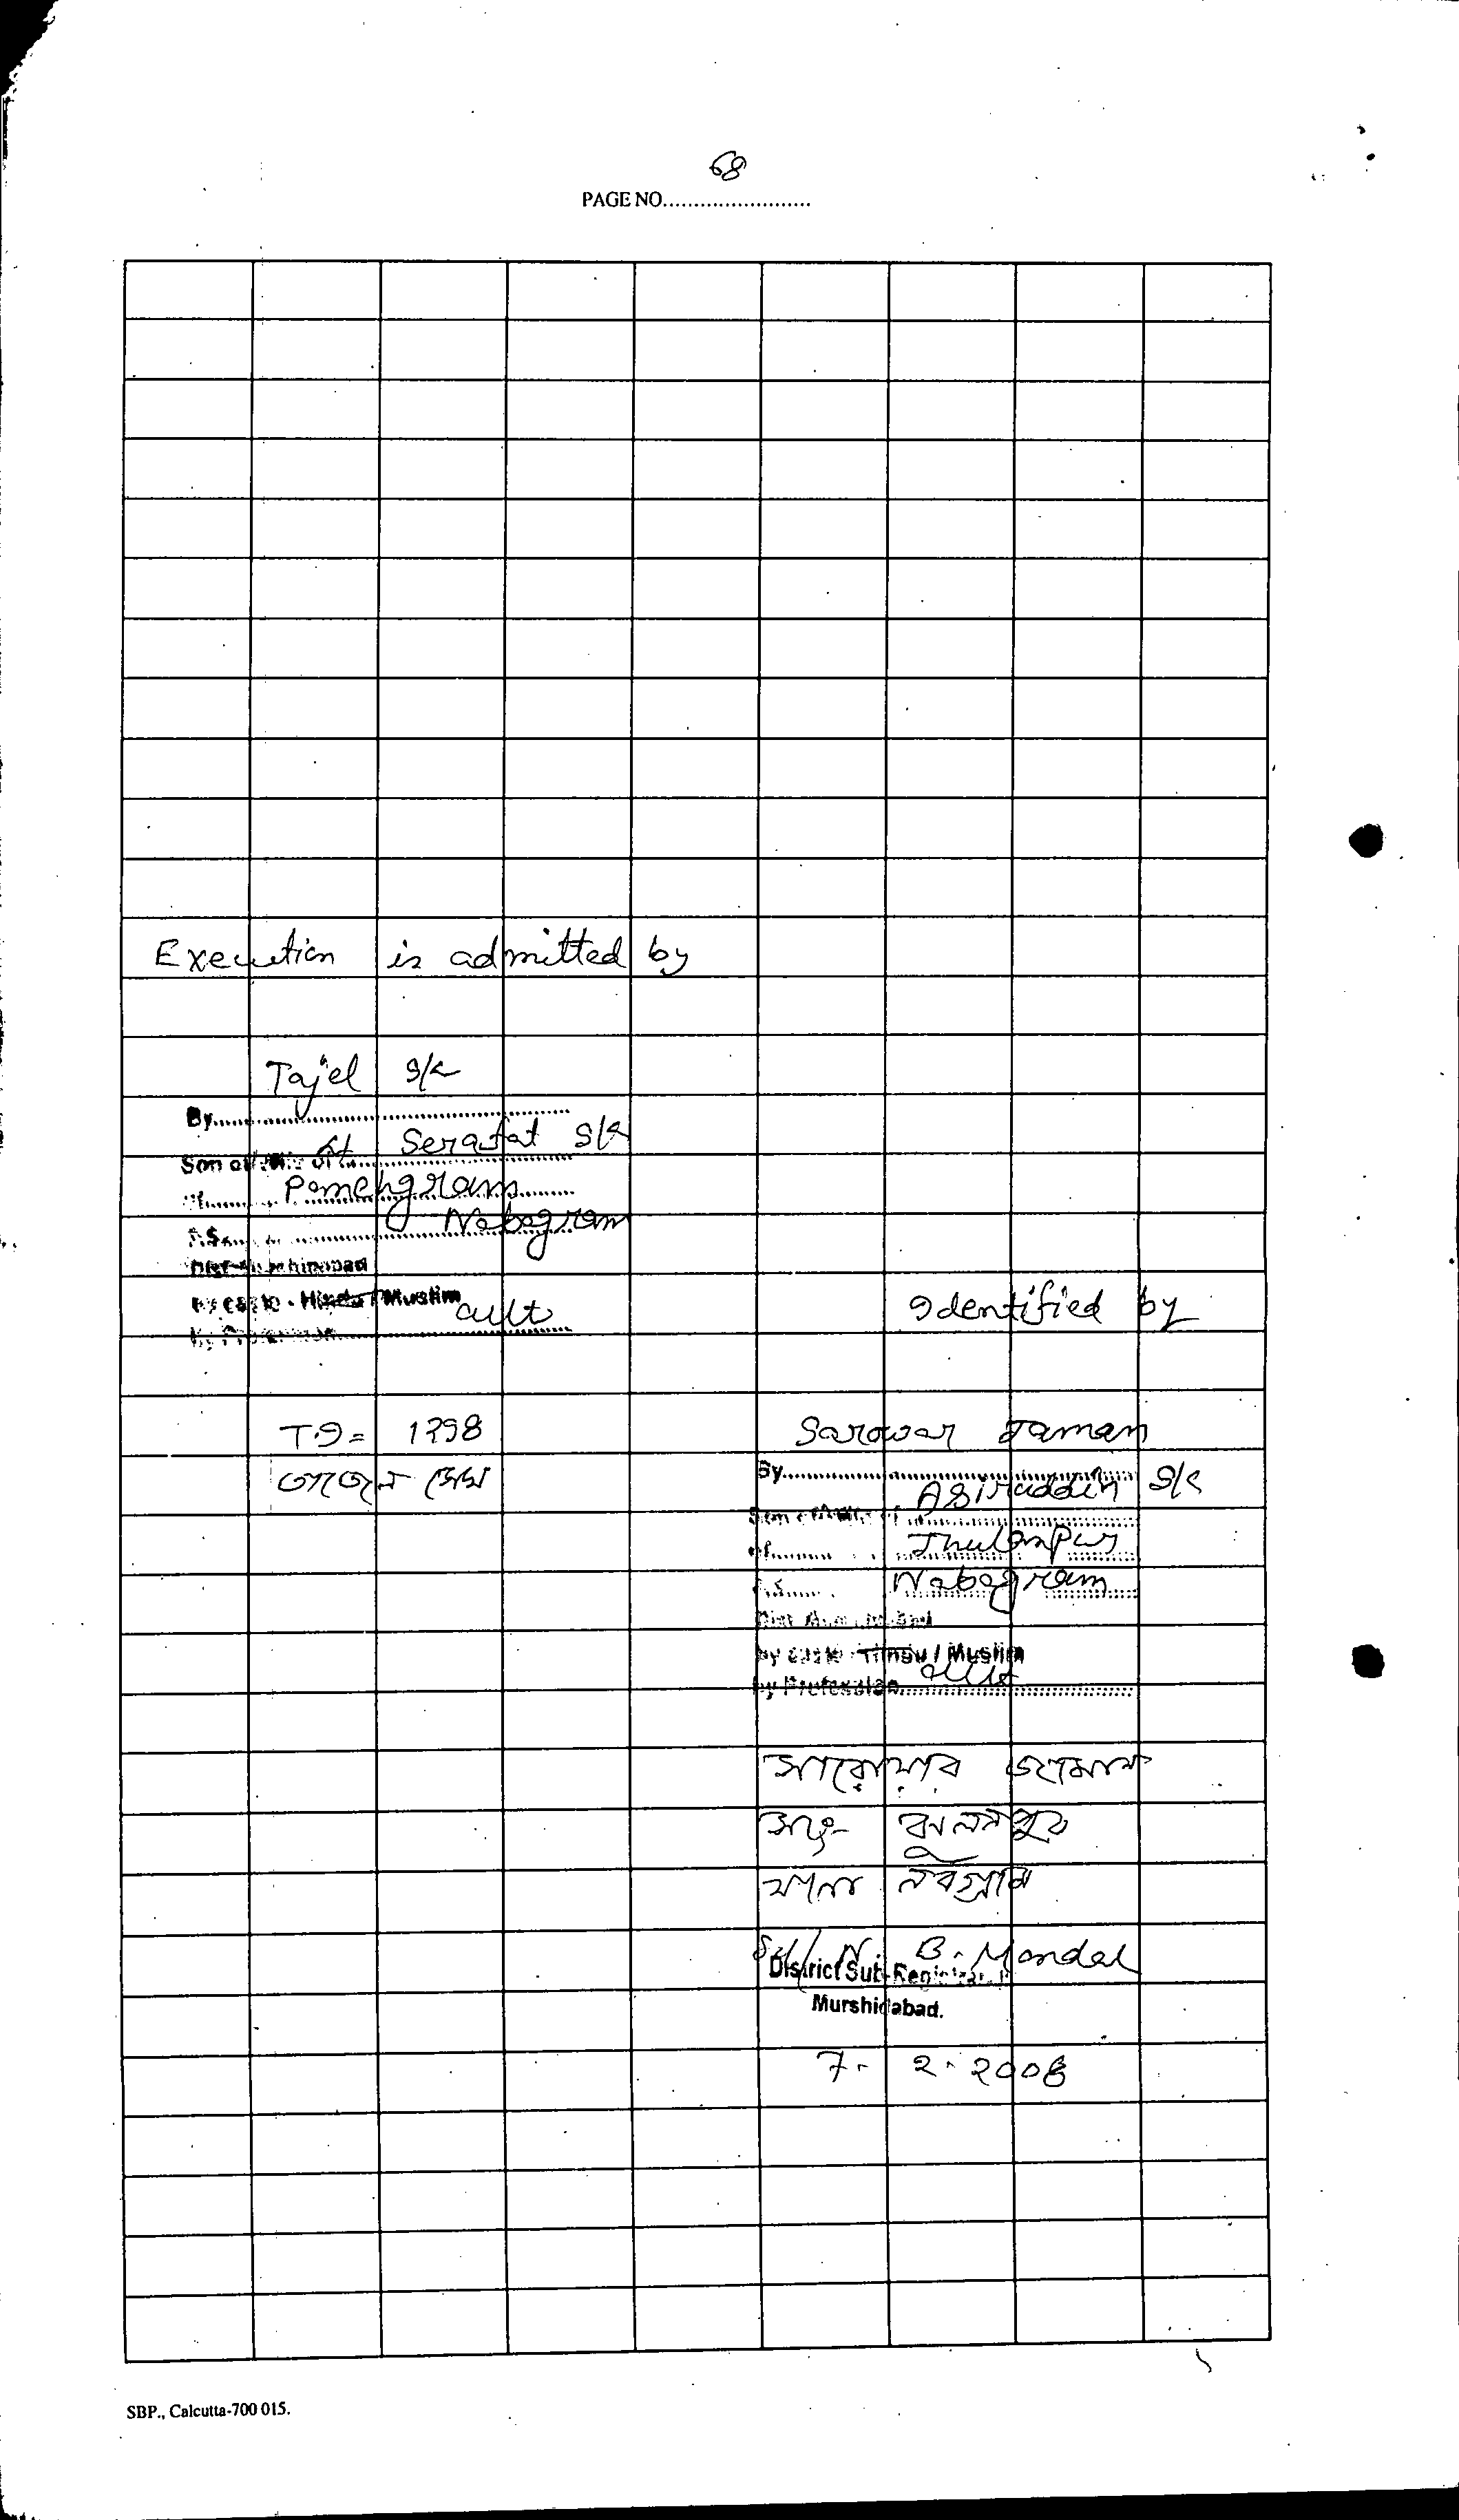 68
PAGE NO........................
Execution is admitted by
Tajel S/K
By........................
Son of Lt Serafat S/K
of Pomengram
P.S. Nabagram
Dist-Murshidabad
by caste - Hindu / Muslim
by Profession cult
Identified by
T.I = 1398
তাজেল সেখ
Sarowar Jaman
By........................
Asiraddin S/K
of Jhulanpur
P.S. Nabagram
Dist Murshidabad
by caste Hindu / Muslim
by Profession cult
সারোয়ার জামান
সাং- ঝুলনপুর
থানা নবগ্রাম
Sd/ N. B. Mondal
District Sub-Registrar
Murshidabad.
7. 2. 2008
SBP., Calcutta-700 015.